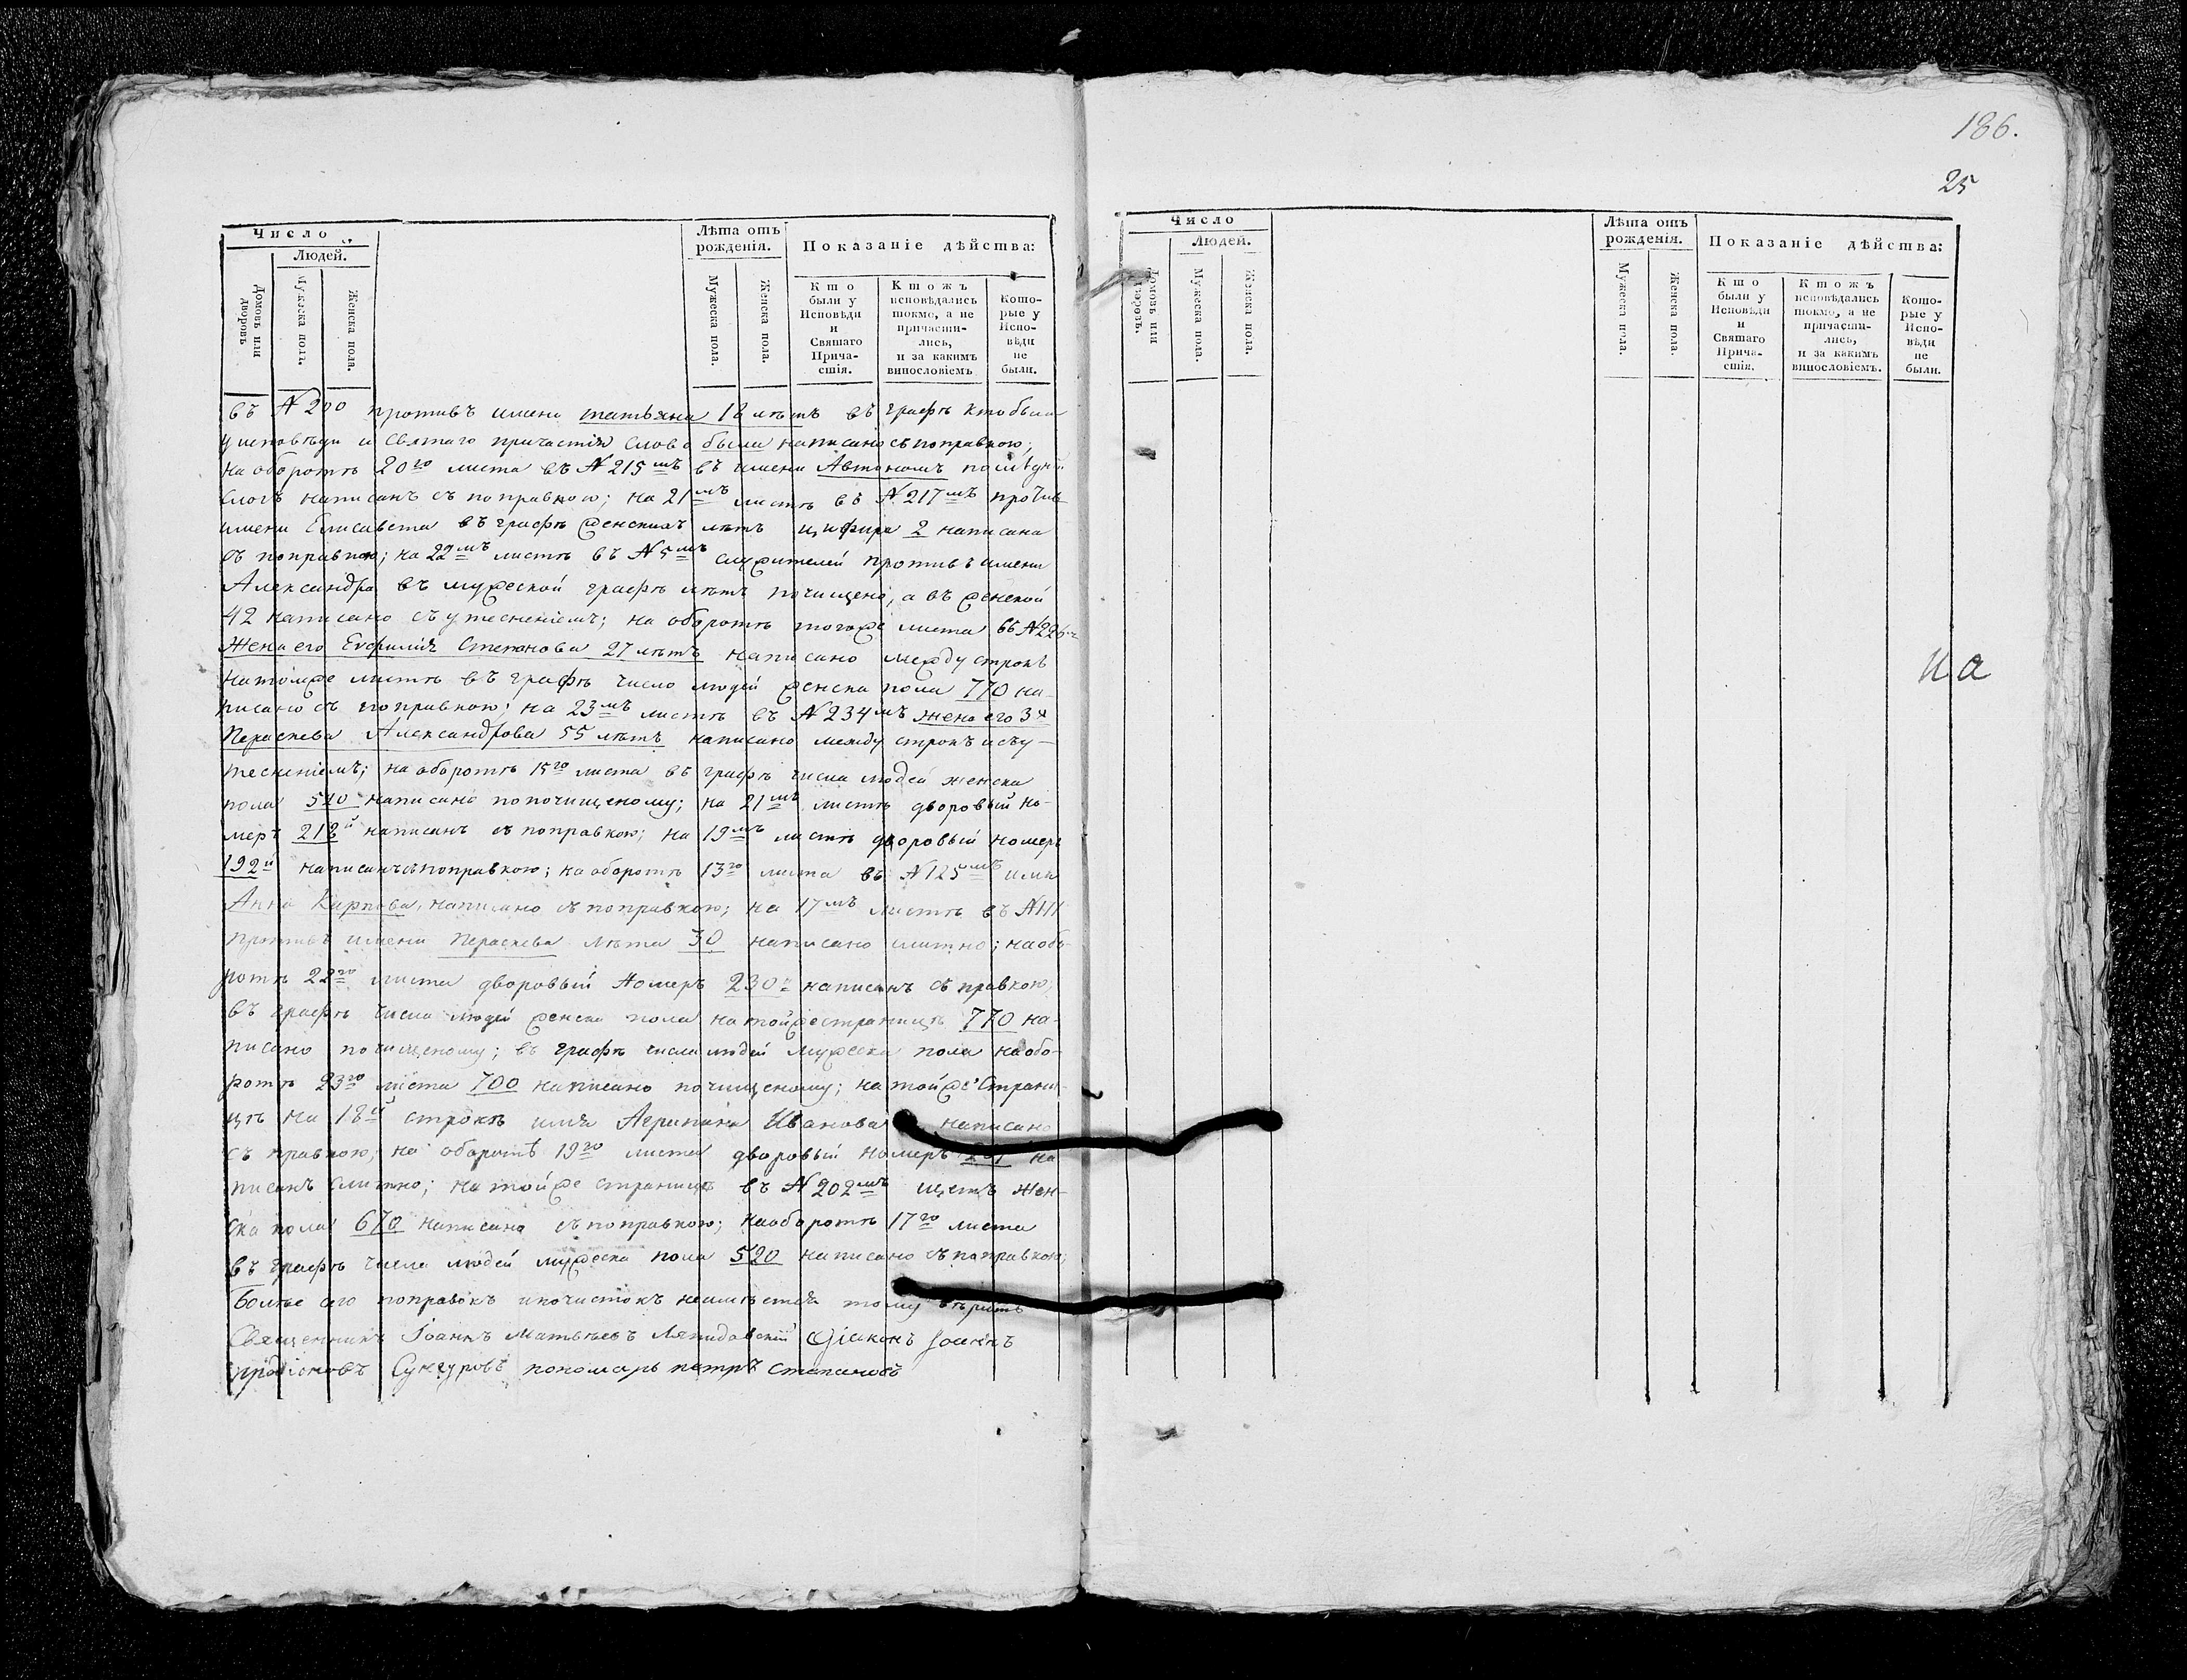 Число
Людей.
Домовъ или дворовъ
Мужеска пола.
Женска пола.
Лѣта отъ рожденія.
Мужеска пола.
Женска пола.
Показаніе дѣйства:
Кто были у Исповѣди и Святаго Прича-стія.
Ктожъ исповѣдались токмо, а не причасти-лись, и за какимъ винословіемъ
Кото-рые у Испо-вѣди не были.
въ №200 противъ имени татьяна 18 лѣтъ въ графѣ кто были
у исповѣди и святаго причастія слово были написано съ поправкою;
на оборотѣ 20го листа въ №215мъ въ имени Автономъ послѣдній
слогъ написанъ съ поправкою; на 21мъ листѣ въ №217мъ противъ
имени Елисавета въ графѣ женскихъ лѣтъ цифира 2 написана
съ поправкою; на 22мъ листѣ въ №5мъ служителей противъ имени
Александра въ мужеской графѣ лѣтъ почищено, а въ женской
42 написано съ утесненіемъ; на оборотѣ тогоже листа въ №226
Жена его Евфимія Степанова 27 лѣтъ написано между строкъ
на томже листѣ въ графѣ число людей женска пола 770 на-
писано съ поправкою; на 23мъ листѣ въ №234мъ жена его 3я
Параскева Александрова 55 лѣтъ написано между строкъ и съу-
тесненіемъ; на оборотѣ 15го листа въ графѣ числа людей женска
пола 510 написано попочищеному; на 21мъ листѣ дворовый но-
меръ 218й написанъ съ поправкою; на 19мъ листѣ дворовый номеръ
192й написанъ съ поправкою; на оборотѣ 13го листа въ №125мъ имя
Анна Карпова, написано съ поправкою; на 17мъ листѣ въ №
противъ имени Параскева лѣта 30 написано слитно; на обо-
ротѣ 22го листа дворовый номеръ 230й написанъ съ правкою;
въ графѣ числа людей женска пола на тойже страницѣ 770 на-
писано почищеному; въ графѣ числа людей мужеска пола на обо-
ротѣ 23го листа 700 написано почищеному; на тойже Страни-
цѣ на 18й строкѣ имя Агрипина Иванова написано
съ правкою; на оборотѣ 19го листа дворовый номеръ 201 на
писанъ слитно; на тойже страницѣ въ №202мъ щетъ жен-
ска пола 670 написано съ поправкою; на оборотѣ 17го листа
въ графѣ числа людей мужеска пола 520 написано съ поправкою;
болѣе сего поправокъ и почистокъ неимѣется тому вѣрить
Священникъ Іоаннъ Матвѣевъ Діаконъ Іоаннъ
Сунгуровъ пономарь петръ степановъ
186.
25
Число
Людей.
Домовъ или дворовъ.
Мужеска пола.
Женска пола.
Лѣта отъ рожденія.
Мужеска пола.
Женска пола.
Показаніе дѣйства:
Кто были у Исповѣди и Святаго Прича-стія.
Ктожъ исповѣдались токмо, а не причасти-лись, и за какимъ винословіемъ.
Кото-рые у Испо-вѣди не были.
на